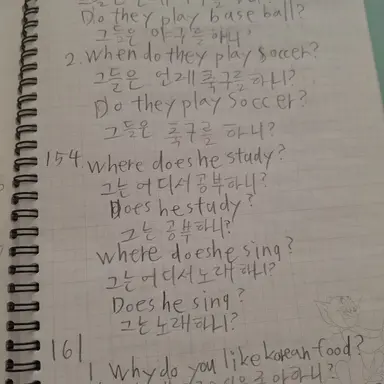 Do they play base ball?
그들은 야구를 하니?
2. When do they play soccer?
그들은 언제 축구를 하니?
Do they play soccer?
그들은 축구를 하니?
154. Where does he study?
그는 어디서 공부하니?
Does he study?
그는 공부하니?
where does he sing?
그는 어디서 노래하니?
Does he sing?
그는 노래하니?
161
1. Why do you like korean food?